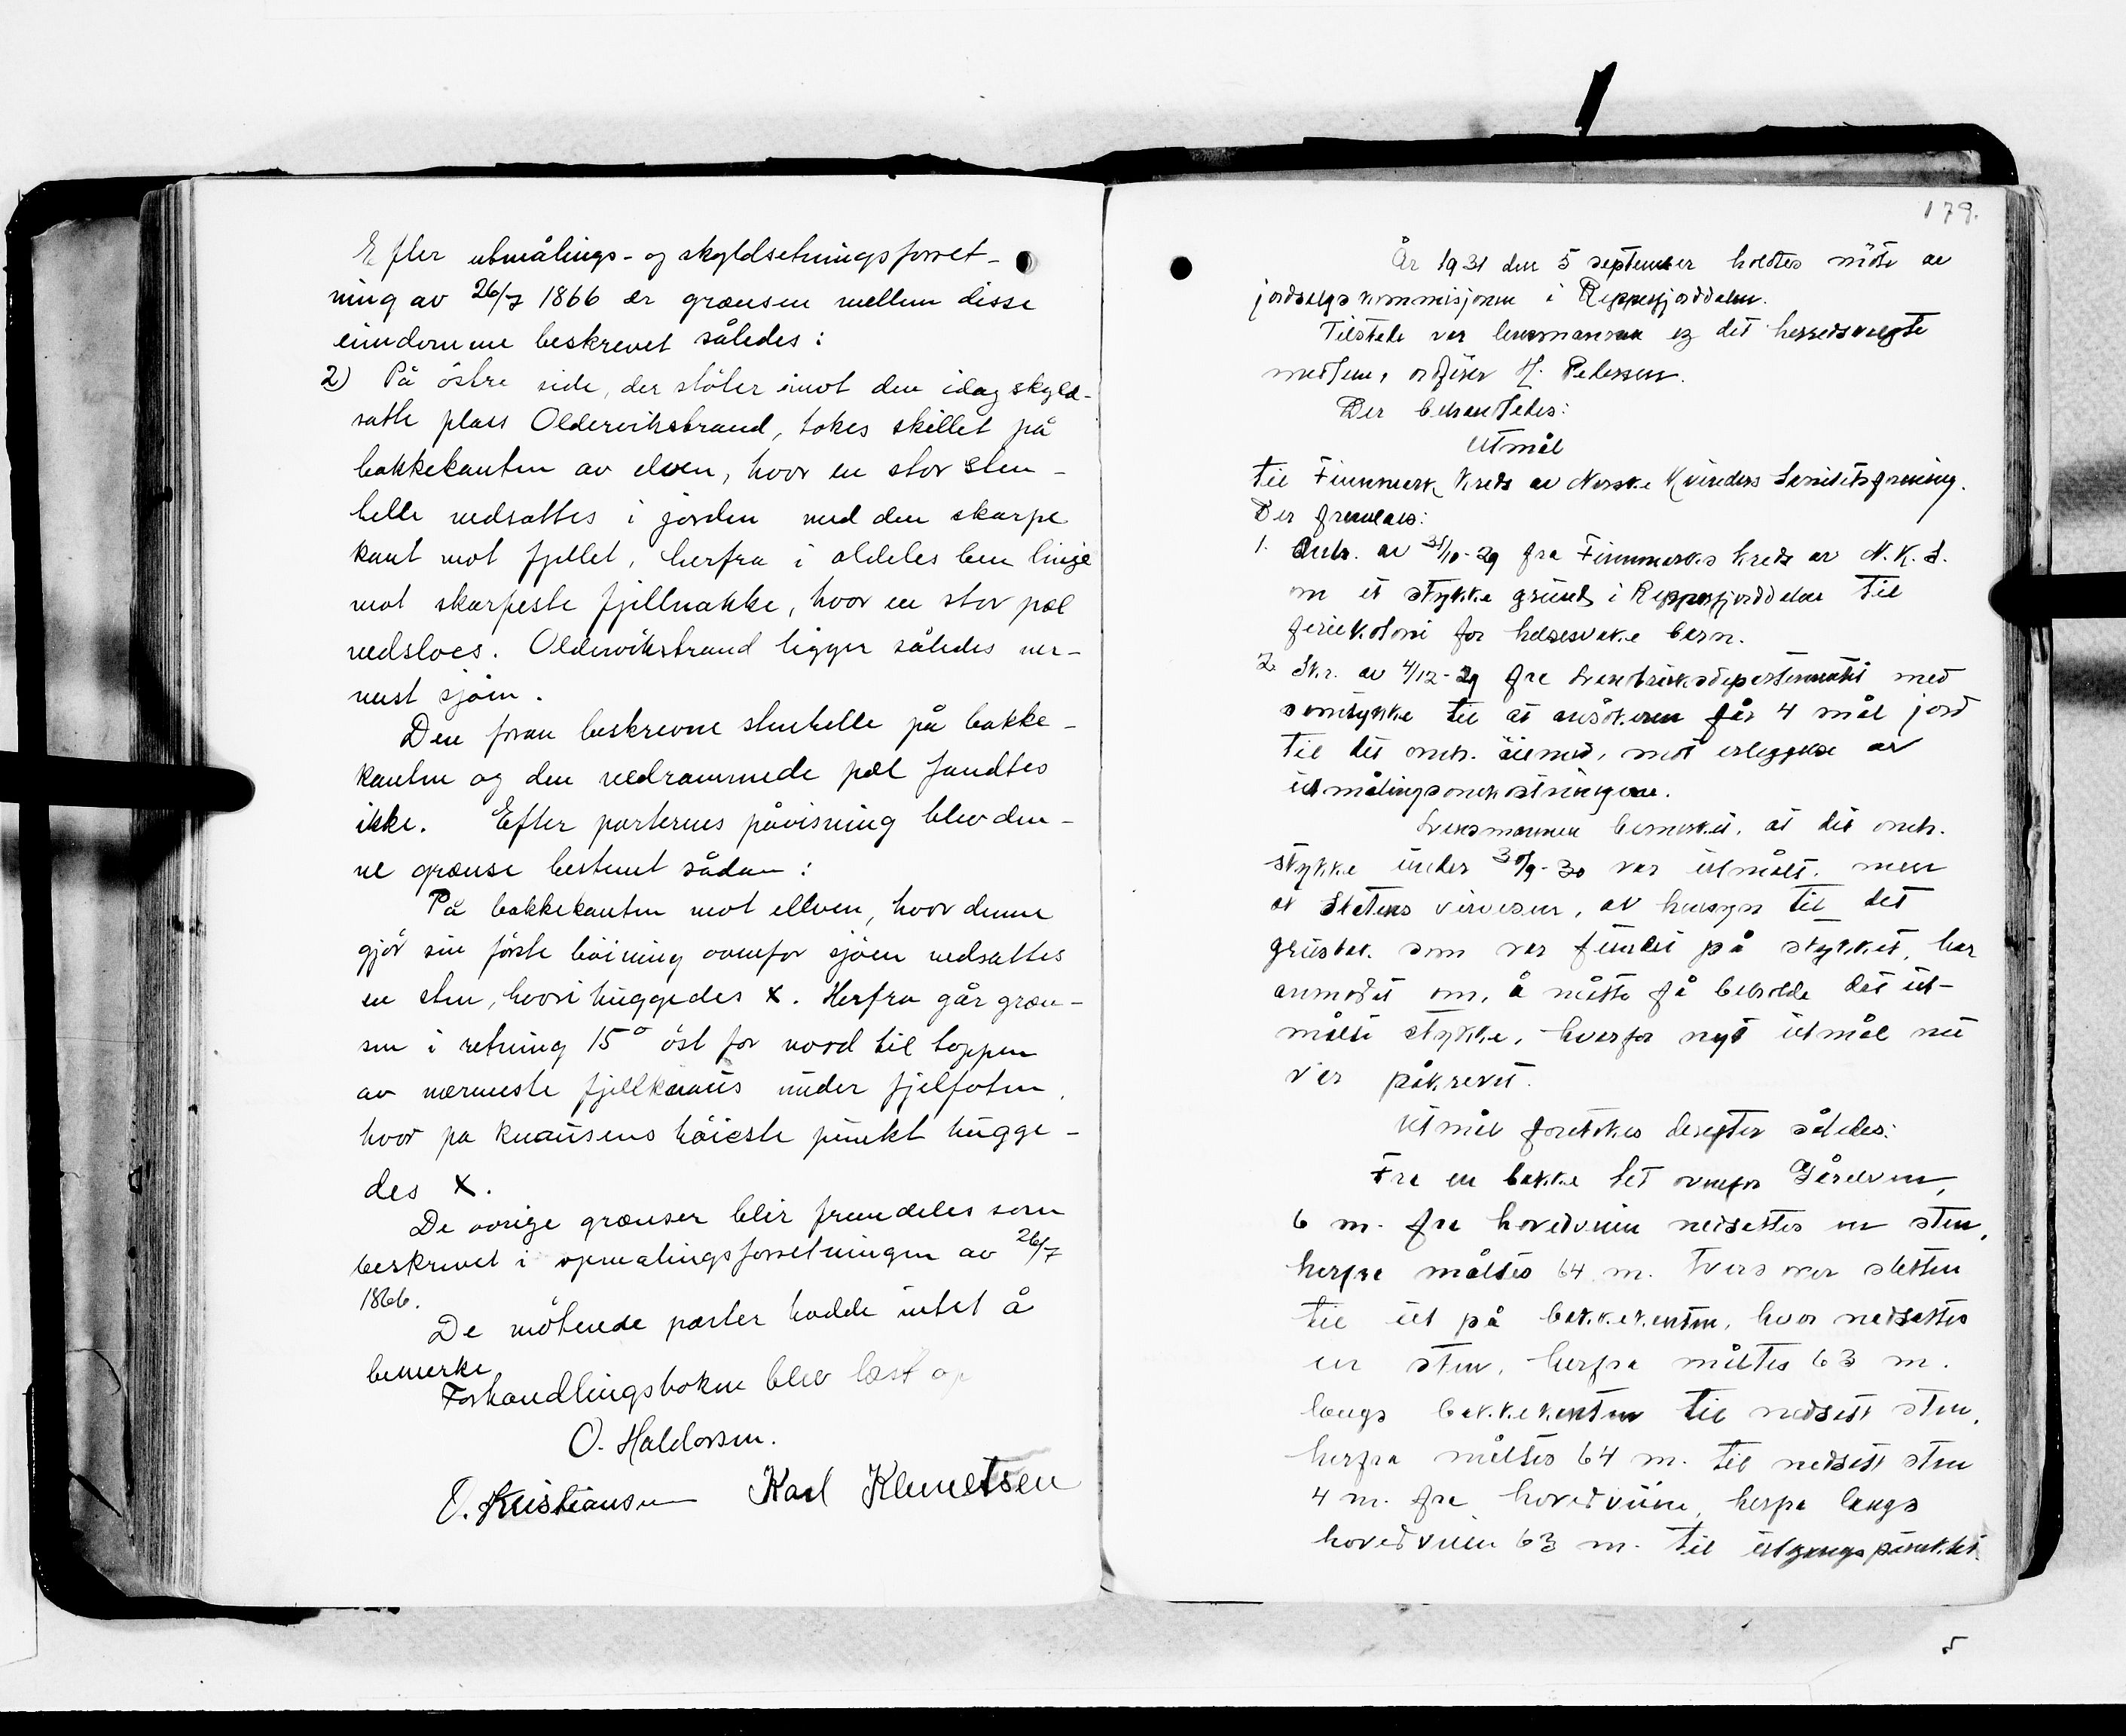 Efter utmålings- og skyldsetningsforret-
ning av 26/7 1866 er grænsen mellem disse
eiendomme beskrevet således:
2) På östre side, der stöter imot den idag skyld-
satte plass Oldervikstrand, tokes skillet på
bakkekanten av elven, hvor en stor sten-
helle nedsattes i jorden med den skarpe
kant mot fjellet, herfra i aldeles ben linje
mot skarpeste fjellnakke, hvor en stor pæl
nedsloes. Oldervikstrand ligger således ner-
mest sjöen.
Den foran beskrevne stenhelle på bakke-
kanten og den nedrammede pæl fandtes
ikke. Efter parternes påvisning blev den-
ne grænse bestemt sådan:
På bakkekanten mot ellven, hvor denne
gjör sin förste böining ovenfor sjöen nedsattes
en sten, hvori huggedes X. Herfra går græn-
sen i retning 15° öst for nord til toppen
av nærmeste fjellknaus under fjelfoten,
hvor på knausens höieste punkt hugge-
des X.
De övrige grænser blir fremdeles som
beskrevet i opmalingsforretningen av 26/7
1866.
De mötende parter hadde intet å
bemerke
Forhandlingsboken blev læst op
O. Haldorsen.
O. Kristiansen Karl Klemetsen
179.
År 1931 den 5 september holdtes möte av
jordsalgskommisjonen i Repparfjorddalen.
Tilstede var lensmannen og det herredsvalgte
medlem, ordförer H. Pedersen.
Der behandledes:
Utmål
til Finnmark Kreds av Norske Kvinders Sanitetsforening.
Der fremlaes:
1. Andr. av 31/10-29 fra Finnmarks Kreds av N.K.S.
om et stykke grund i Repparfjorddalen til
feriekoloni for helsesvake barn.
2 Skr. av 4/12-29 fra Landbruksdepartementet med
samtykke til at ansökeren får 4 mål jord
til det omh. öiemed, mot erleggelse av
utmålingsomkostningene.
Lensmannen bemerket, at det omh.
stykke under 30/9-30 var utmålt, men
at Statens veivesen, av hensyn til det
grustak som var fundet på stykket, har
anmodet om, å måtte få beholde det ut-
målte stykke, hvorfor nyt utmål nu
var påkrevet.
Utmål foretokes derefter således:
Fra en bakke tet ovenfor Gårelven,
6 m. fra hovedveien nedsattes en sten,
herfra måltes 64 m. tvers over sletten
til ut på bakkekanten, hvor nedsattes
en sten, herfra måltes 63 m.
langs bakkekanten til nedsatt sten,
herfra måltes 64 m. til nedsatt sten
4 m. fra hovedveien, herfra langs
hovedveien 63 m. til utgangspunktet.